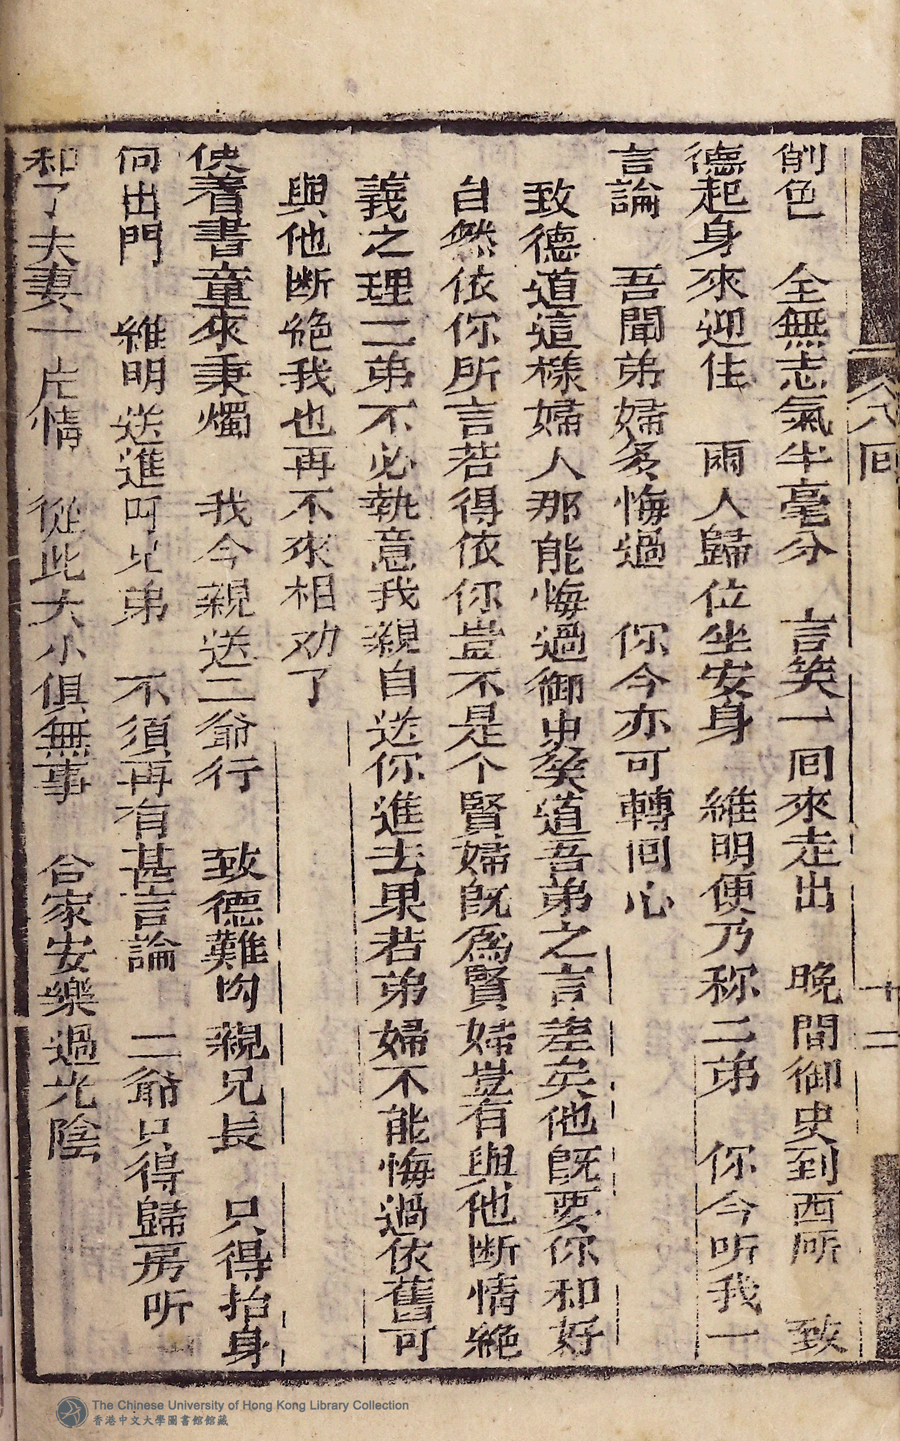 八回
十二
削色　全無志氣半毫分　言笑一回來走出　晚間御史到西所　致
德起身來迎住　兩人歸位坐安身　維明便乃称二弟　你今听我一
言論　吾聞弟婦多悔過　你今亦可轉回心
致德道這樣婦人那能悔過御史笑道吾弟之言差矣他旣要你和好
自然依你所言若得依你豈不是个賢婦旣爲賢婦豈有與他断情絶
義之理二弟不必執意我親自送你進去果若弟婦不能悔過依舊可
與他断絶我也再不來相劝了
使着書童來秉燭　我今親送二爺行　致德難拘親兄長　只得抬身
同出門　維明送進呌兄弟　不須再有甚言論　二爺只得歸房听
和了夫妻一片情　從此大小俱無事　合家安樂過光陰
The Chinese University of Hong Kong Library Collection
香港中文大學圖書館館藏